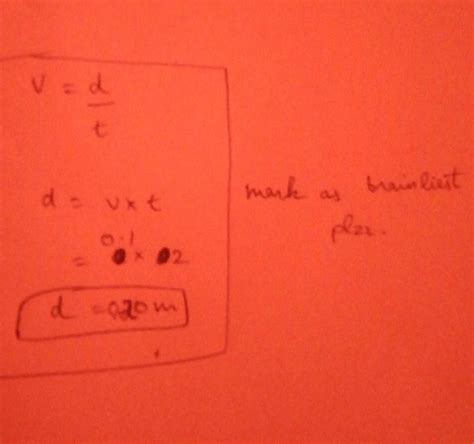 v = d
t
d = v x t
0.1
= x 2
d = 0.20m
mark as brainliest
plzz.